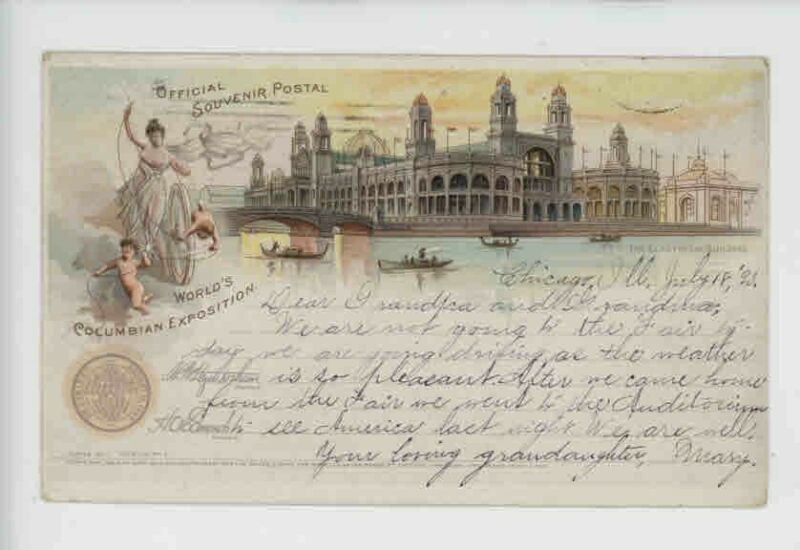 OFFICIAL
SOUVENIR POSTAL
THE ELECTRICAL BUILDING
WORLD'S
COLUMBIAN EXPOSITION.
Chicago, Ill. July 18, '93.
Dear Grandpa and Grandma,
We are not going to the Fair to-
day we are going driving as the weather
is so pleasant. After we came home
from the Fair we went to the Auditorium
to see America last night. We are well.
Your loving grandaughter, Mary.